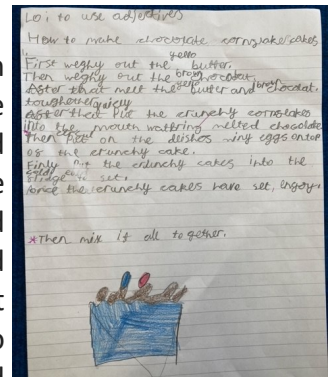 Lo, i to use adjectives
How to make chocolate cornflake cakes
yello
First weghy out the butter.
brown
Then weghy out the chocolat.
yello brown
After that melt the butter and chocolat.
toughether quicly
After that Put the crunchy cornflakes
into the mouth watering melted chocolate
Then Put on the dlishos miny eggs ontop
of the crunchy cake.
Finly Put the crunchy cakes into the
fridge to set.
once the crunchy cakes have set, enjoy.
*Then mix it all together.